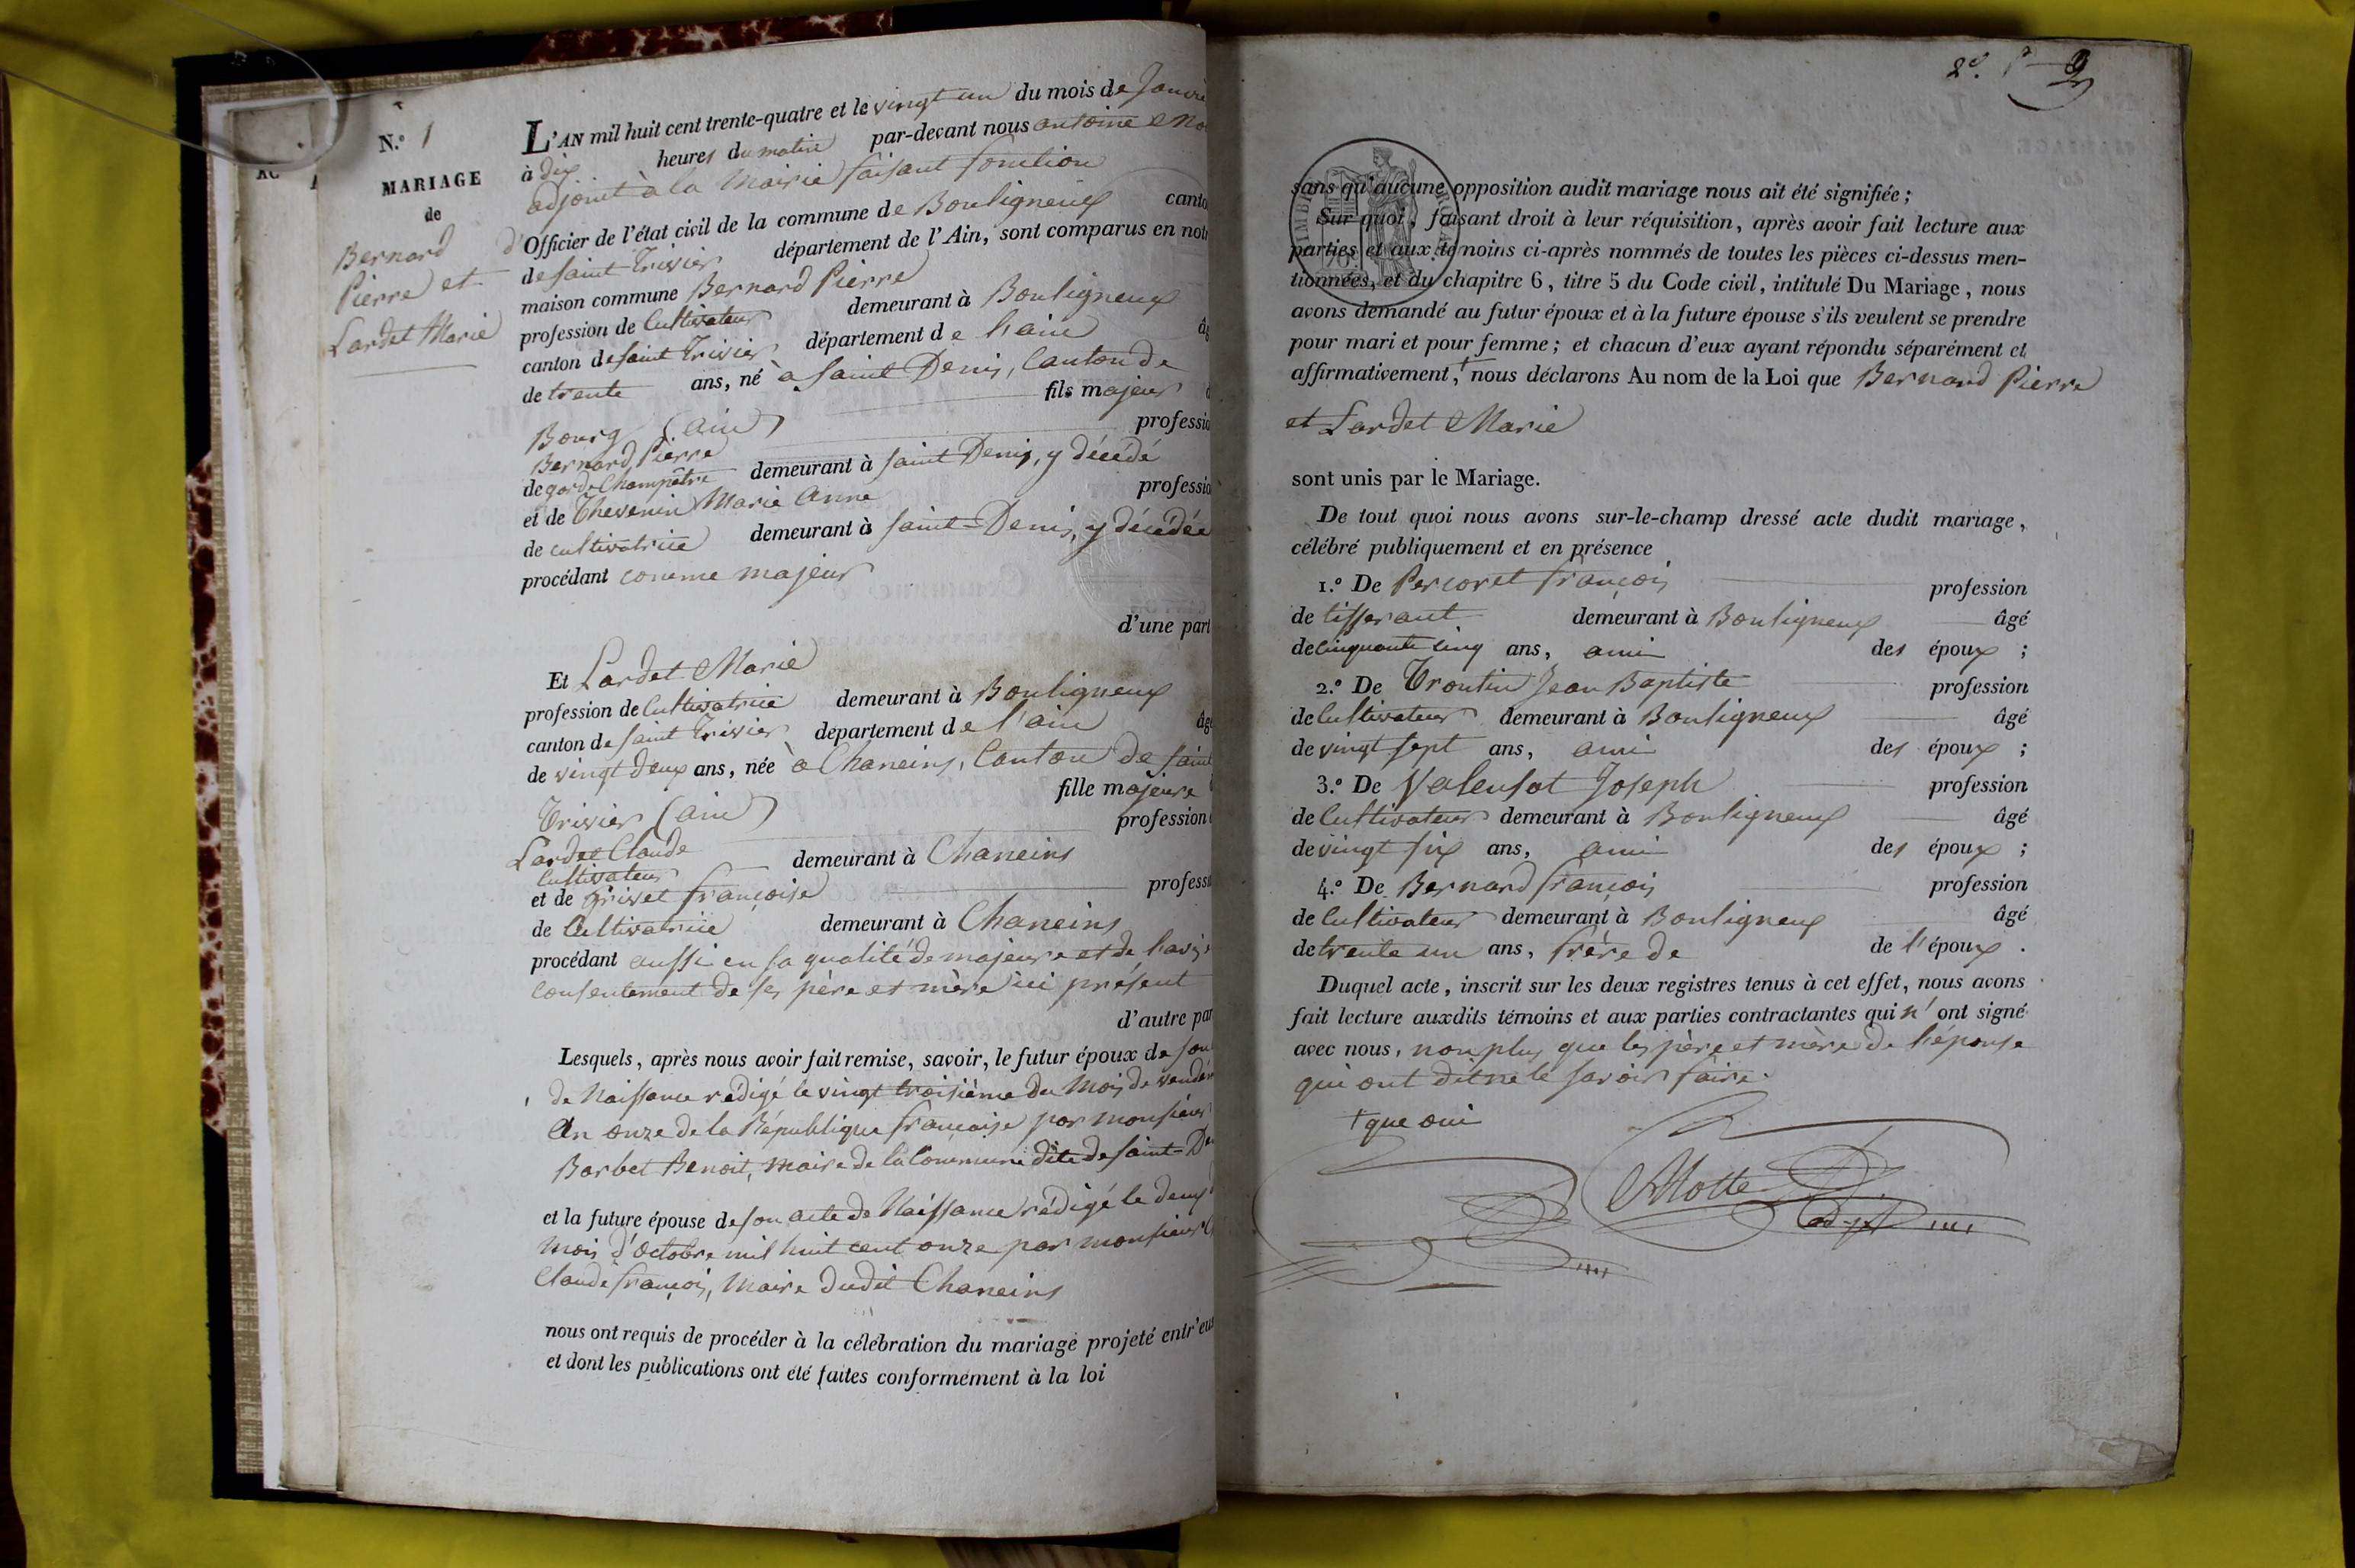 N.º 1
MARIAGE
de
Bernard
Pierre et
Lardet Marie
L'AN mil huit cent trente-quatre et le vingt un du mois de
à dix heures du matin par-devant nous antoine
adjoint à la Mairie faisant fonction
d'Officier de l'état civil de la commune de Bouligneux
de saint Trivier département de l'Ain, sont comparus en
maison commune Bernard Pierre
profession de Cultivateur demeurant à Bouligneux
canton de saint Trivier département de l'ain
de trente ans, né à Saint Denis, Canton de
Bourg (ain) fils majeur
Bernard Pierre
de garde Champêtre demeurant à saint Denis, y décédé
et de Thevenin Marie Anne
de cultivatrice demeurant à saint-Denis, y décédée
procédant comme majeur
d'une part
Et Lardet Marie
profession de Cultivatrice demeurant à Bouligneux
canton de saint Trivier département de l'ain
de vingt deux ans, née à Chaneins, Canton de saint
Trivier (ain) fille majeure
Lardet Claude profession
Cultivateur demeurant à Chaneins
et de Grivet françoise
de Cultivatrice demeurant à Chaneins
procédant aussi en sa qualité de majeure et de l'avis
Consentement de ses père et mère ici présent
d'autre
Lesquels, après nous avoir fait remise, savoir, le futur époux de
de Naissance rédigé le vingt troisième du Mois de
An onze de la République française par monsieur
Barbet Benoit, maire de la Commune dite de saint-
et la future épouse de son acte de Naissance rédigé le deux
Mois d'octobre mil huit cent onze par monsieur
Claude françois, Maire dudit Chaneins
nous ont requis de procéder à la célébration du mariage projeté
et dont les publications ont été faites conformément à la loi
sans qu'aucune opposition audit mariage nous ait été signifiée ;
Sur quoi, faisant droit à leur réquisition, après avoir fait lecture aux
parties et aux témoins ci-après nommés de toutes les pièces ci-dessus men-
tionnées, et du chapitre 6, titre 5 du Code civil, intitulé Du Mariage, nous
avons demandé au futur époux et à la future épouse s'ils veulent se prendre
pour mari et pour femme ; et chacun d'eux ayant répondu séparément et
affirmativement, + nous déclarons Au nom de la Loi que Bernard Pierre
et Lardet Marie
sont unis par le Mariage.
De tout quoi nous avons sur-le-champ dressé acte dudit mariage,
célébré publiquement et en présence
1.º De Percoret françois profession
de tisserant demeurant à Bouligneux âgé
de cinquante cinq ans, ami des époux ;
2.º De Troutin Jean Baptiste profession
de Cultivateur demeurant à Bouligneux âgé
de vingt sept ans, ami des époux ;
3.º De Valensot Joseph profession
de Cultivateur demeurant à Bouligneux âgé
de vingt six ans, ami des époux ;
4.º De Bernard françois profession
de Cultivateur demeurant à Bouligneux âgé
de trente un ans, frère de de l'époux .
Duquel acte, inscrit sur les deux registres tenus à cet effet, nous avons
fait lecture auxdits témoins et aux parties contractantes qui n'ont signé
avec nous, non plus que les père et mère de l'épouse
qui ont dit ne le savoir faire.
+ que oui
Motte